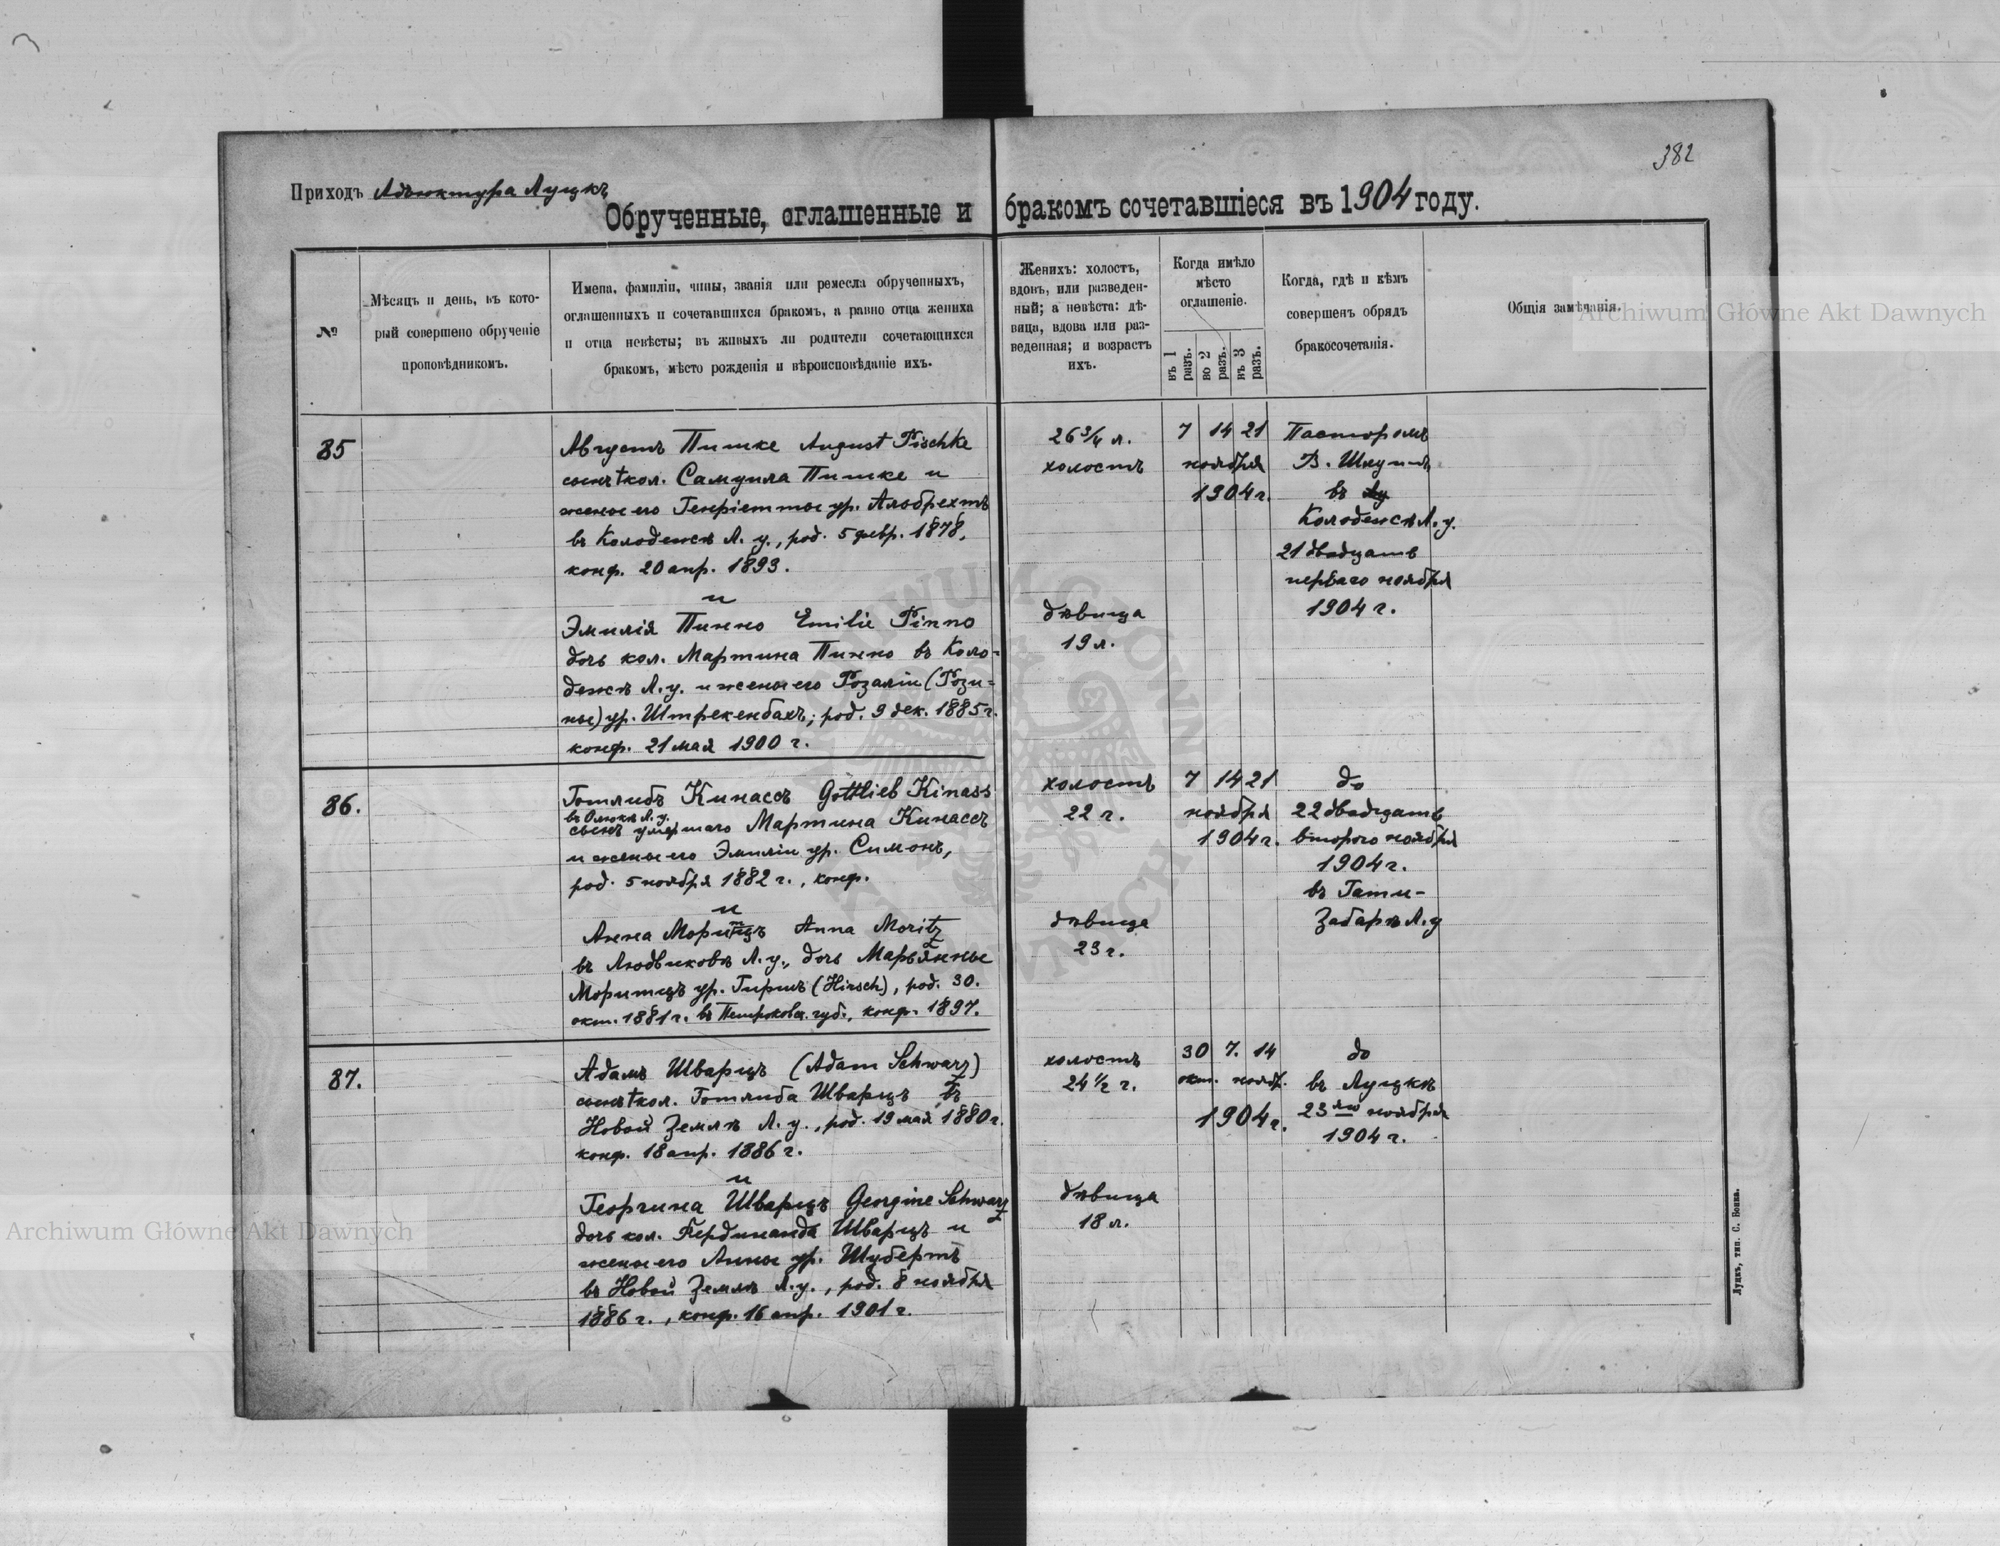 382
Приходъ Адъюктура Луцкъ
Обрученные, оглашенные и бракомъ сочетавшіеся въ 1904 году.
№
Мѣсяцъ и день, въ кото-
рый совершено обрученіе
проповѣдникомъ.
Имена, фамиліи, чины, званія или ремесла обрученныхъ,
оглашенныхъ и сочетавшихся бракомъ, а равно отца жениха
и отца невѣсты; въ живыхъ ли родители сочетающихся
бракомъ, мѣсто рожденія и вѣроисповѣданіе ихъ.
Женихъ: холостъ,
вдовъ, или разведен-
ный; а невѣста: дѣ-
вица, вдова или раз-
веденная; и возрастъ
ихъ.
Когда имѣло
мѣсто
оглашеніе.
въ 1 разъ.
во 2 разъ.
въ 3 разъ.
Когда, гдѣ и кѣмъ
совершенъ обрядъ
бракосочетанія.
Общія замѣчанія.
85
Августъ Пишке August Pischke
сынъ †кол. Самуила Пишке и
жены его Генріетты ур. Альбрехтъ
въ Колоденскѣ Л. у., род. 5 февр. 1878,
конф. 20 апр. 1893.
и
Эмилія Пинно Emilie Pinno
дочь кол. Мартина Пинно въ Коло-
денскѣ Л. у. и жены его Розаліи (Рози-
ны) ур. Штрекенбахъ; род. 9 дек. 1885 г.
конф. 21 мая 1900 г.
26 3/4 л.
холостъ
дѣвица
19 л.
7 14 21
ноября
1904 г.
Пасторомъ
В.
въ
Колоденскѣ Л. у.
21 двадцать
перваго ноября
1904 г.
86.
Готлибъ Кинассъ Gottlieb Kinass
въ Олыкѣ Л. у.
сынъ умершаго Мартина Кинассъ
и жены его Эмиліи ур. Симонъ,
род. 5 ноября 1882 г., конф.
и
Анна Морицъ Anna Moritz
въ Людвиковкѣ Л. у., дочь Марьянны
Моритцъ ур. Гиршъ (Hirsch), род. 30.
окт. 1881 г. въ Петроковск. губ., конф. 1897.
холостъ
22 г.
дѣвица
23 г.
7 14 21
ноября
1904 г.
до
22 двадцать
второго ноября
1904 г.
въ Гати-
Забарѣ Л. у
87.
Адамъ Шварцъ (Adam Schwarz)
сынъ †кол. Готлиба Шварцъ въ
Новой Землѣ Л. у., род. 19 мая 1880 г.
конф. 18 апр. 1886 г.
и
Георгина Шварцъ Georgine Schwarz
дочь кол. Фердинанда Шварцъ и
жены его Анны ур. Шубертъ
въ Новой Землѣ Л. у., род. 8 ноября
1886 г., конф. 16 апр. 1901 г.
холостъ
24 1/2 г.
дѣвица
18 л.
30 7. 14
окт. ноябр.
1904 г.
до
въ Луцкѣ
23 ноября
1904 г.
Луцкъ, тип. С. Бонка.
Archiwum Główne Akt Dawnych
Archiwum Główne Akt Dawnych